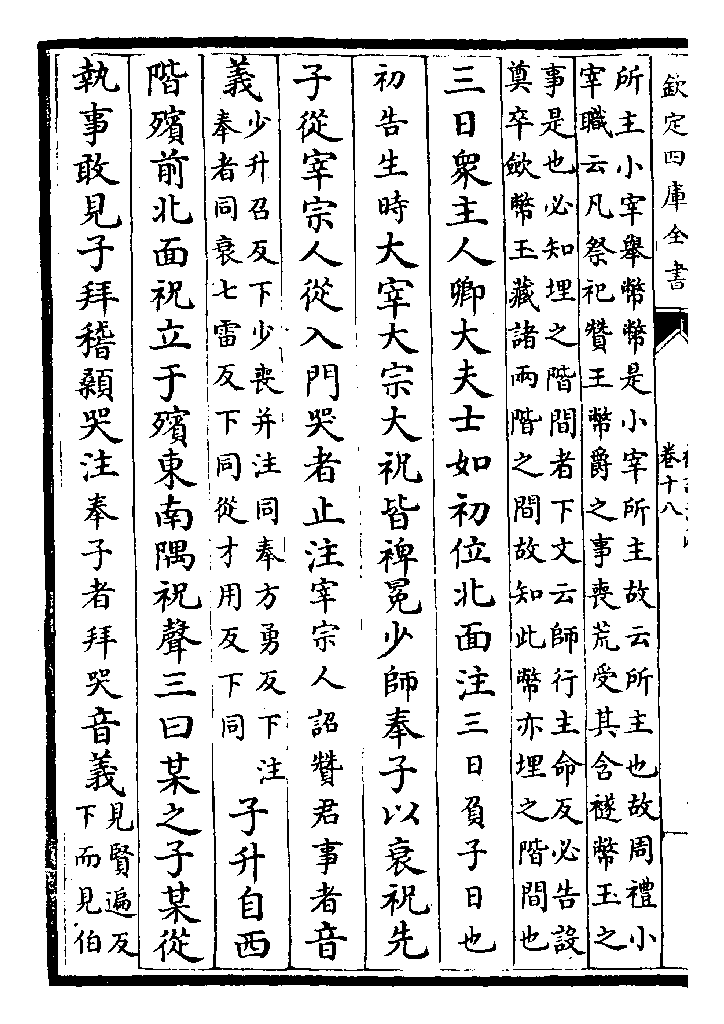 欽定四庫全書
卷十八
所主小宰舉幣幣是小宰所主故云所主也故周禮小
宰職云凡祭祀贊王幣爵之事喪荒受其含襚幣玉之
事是也必知埋之階間者下文云師行主命反必告設
奠卒斂幣玉藏諸兩階之間故知此幣亦埋之階間也
三日衆主人卿大夫士如初位北面注三日負子日也
初告生時大宰大宗大祝皆裨冕少師奉子以衰祝先
子從宰宗人從入門哭者止注宰宗人詔贊君事者音
義少升召反下少喪并注同奉方勇反下注
奉者同衰七雷反下同從才用反下同
子升自西
階殯前北面祝立于殯東南隅祝聲三曰某之子某從
執事敢見子拜稽顙哭注奉子者拜哭音義見賢遍反
下而見伯